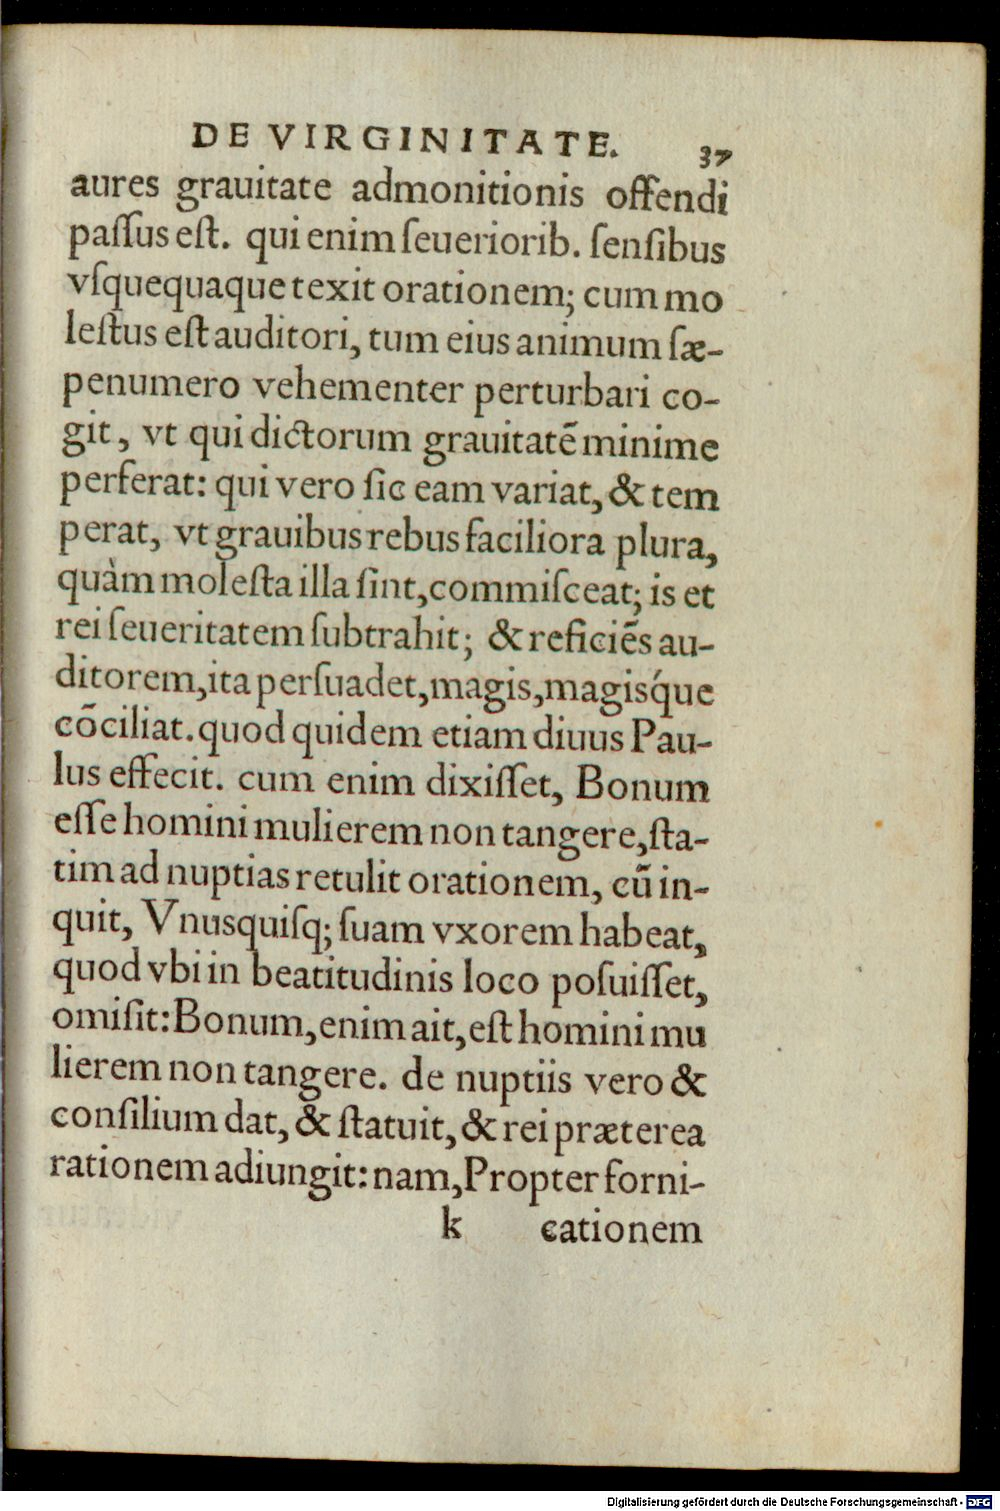 DE VIRGINITATE. 37
aures grauitate admonitionis offendi
paſſus eſt. qui enim ſeueriorib. ſenſibus
vſquequaque texit orationem; cum mo
leſtus eſt auditori, tum eius animum ſæ-
penumero vehementer perturbari co-
git, vt qui dictorum grauitatē minime
perferat: qui vero ſic eam variat, & tem
perat, vt grauibus rebus faciliora plura,
quàm moleſta illa ſint, commiſceat; is et
rei ſeueritatem ſubtrahit; & reficiēs au-
ditorem, ita perſuadet, magis, magisq́ue
cōciliat. quod quidem etiam diuus Pau-
lus effecit. cum enim dixiſſet, Bonum
eſſe homini mulierem non tangere, ſta-
tim ad nuptias retulit orationem, cū in-
quit, Vnusquiſq; ſuam vxorem habeat,
quod vbi in beatitudinis loco poſuiſſet,
omiſit: Bonum, enim ait, eſt homini mu
lierem non tangere. de nuptiis vero &
conſilium dat, & ſtatuit, & rei præterea
rationem adiungit: nam, Propter forni-
k cationem
Digitalisierung gefördert durch die Deutsche Forschungsgemeinschaft - DFG